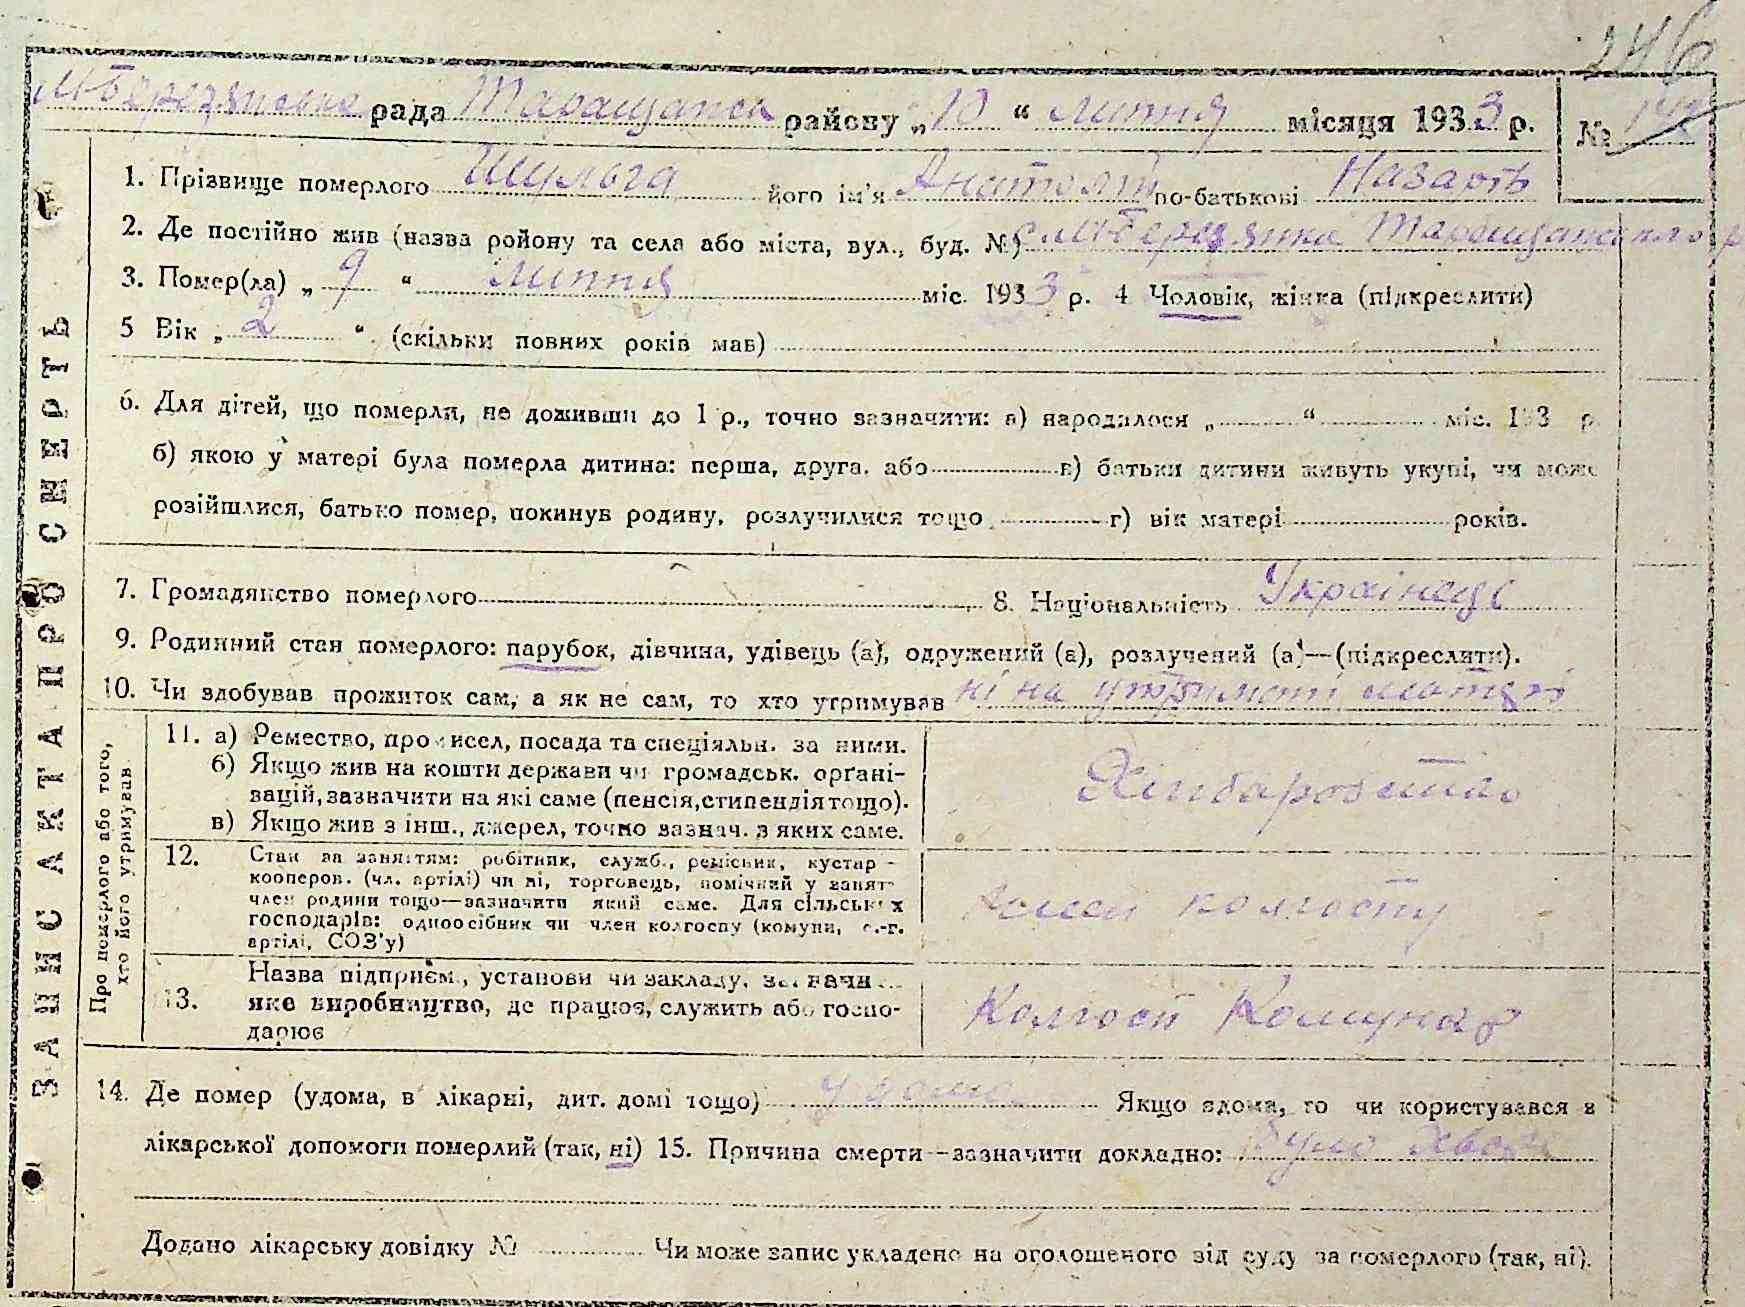 246
М-Березянська рада Таращанськ району „10“ липня місяця 1933 р. № 142
1. Прізвище померлого Шульга його ім'я Анатолій по-батькові Назарів
2. Де постійно жив (назва ройону та села або міста, вул., буд. №) с. М-Березянка Таращанського р
3. Помер(ла) „9“ липня міс. 1933 р. 4 Чоловік, жінка (підкреслити)
5 Вік „2“ (скільки повних років мав)
6. Для дітей, що померли, не доживши до 1 р., точно зазначити: а) народилося „ “ міс. 193 р
б) якою у матері була померла дитина: перша, друга, або в) батьки дитини живуть укупі, чи може
розійшлися, батько помер, покинув родину, розлучилися тощо г) вік матері років.
7. Громадянство померлого 8. Національність Українець
9. Родинний стан померлого: парубок, дівчина, удівець (а), одружений (а), розлучений (а)—(підкреслити).
10. Чи здобував прожиток сам, а як не сам, то хто утримував ні на утриманні матері
ЗАПИС АКТА ПРО СМЕРТЬ
Про померлого або того, хто його утримував
11. а) Ремество, промисел, посада та спеціяльн. за ними.
б) Якщо жив на кошти держави чи громадськ. органі-
зацій, зазначити на які саме (пенсія, стипендія тощо).
в) Якщо жив з інш., джерел, точно зазнач. з яких саме.
Хліборобство
12. Стан за заняттям: робітник, служб., ремісник, кустар -
кооперов. (чл. артілі) чи ні, торговець, помічний у занят-
член родини тощо—зазначити який саме. Для сільських
господарів: одноосібник чи член колгоспу (комуни, с.-г.
артілі, СОЗ'у)
член колгоспу
13. Назва підприєм., установи чи закладу, зазначи
яке виробництво, де працює, служить або госпо-
дарює
Колгосп Комунар
14. Де помер (удома, в лікарні, дит. домі тощо) удома Якщо вдома, то чи користувався з
лікарської допомоги померлий (так, ні) 15. Причина смерти—зазначити докладно: було хворе
Додано лікарську довідку № Чи може запис укладено на оголошеного від суду за померлого (так, ні).